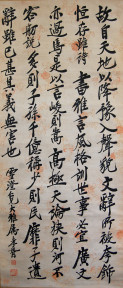 故自天地以降豫入聲貌文辭所被夸飾
恒存雖詩書雅言風格訓世事必宜廣文
亦過焉是以言峻則嵩高極天論狹則河不
容舠說多則子孫千億稱少則民靡孑遺
辭雖已甚其義無害也 雲澄先生雅屬